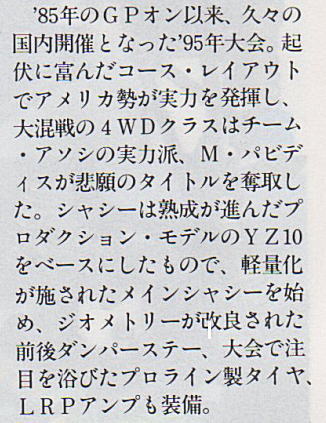 '85年のGPオン以来、久々の
国内開催となった'95年大会。起
伏に富んだコース・レイアウト
でアメリカ勢が実力を発揮し、
大混戦の4WDクラスはチーム
・アソシの実力派、M・パビデ
ィスが悲願のタイトルを奪取し
た。シャシーは熟成が進んだプ
ロダクション・モデルのYZ10
をベースにしたもので、軽量化
が施されたメインシャシーを始
め、ジオメトリーが改良された
前後ダンパーステー、大会で注
目を浴びたプロライン製タイヤ、
LRPアンプも装備。